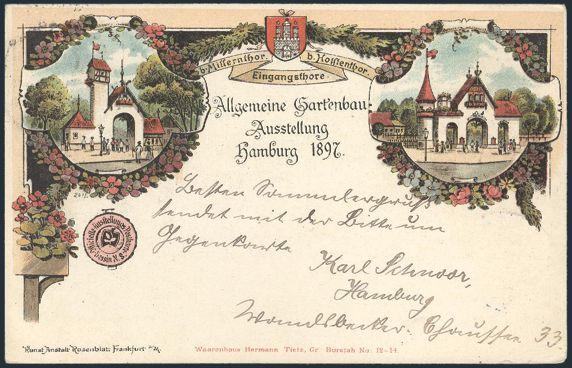 b. Millernthor.
b. Holstenthor.
Eingangsthore.
Allgemeine Gartenbau-
Ausstellung
Hamburg 1897.
Besten Sammlergruß
sendet mit der Bitte um
Gegenkarte
Karl Schnoor,
Hamburg
Wandsbecker-Chaussee 33
Kunst Anstalt Rosenblatt Frankfurt a/M.
Waarenhaus Hermann Tietz, Gr. Burstah No. 12-14.